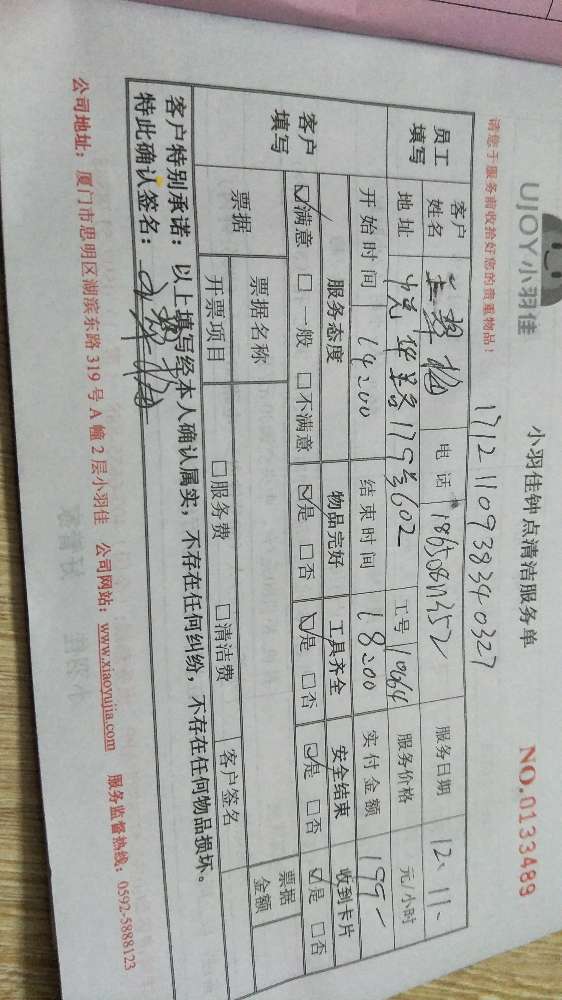 UJOY小羽佳
小羽佳钟点清洁服务单
NO.0133489
请您于服务前收拾好您的贵重物品！
1712110938340327
员工填写 客户姓名 电话 服务日期 12.11.
地址 179号602 工号 服务价格 元/小时
开始时间 14:00 结束时间 18:00 实付金额 199
客户填写 服务态度 物品完好 工具齐全 安全结束 收到卡片
☑满意 □一般 □不满意 ☑是 □否 ☑是 □否 ☑是 □否 ☑是 □否
票据 票据名称 客户签名 票据金额
开票项目 □服务费 □清洁费
客户特别承诺：以上填写经本人确认属实，不存在任何纠纷，不存在任何物品损坏。
特此确认签名：
公司地址：厦门市思明区湖滨东路 319 号 A 幢 2 层小羽佳 公司网站：www.xiaoyujia.com 服务监督热线：0592-5888123